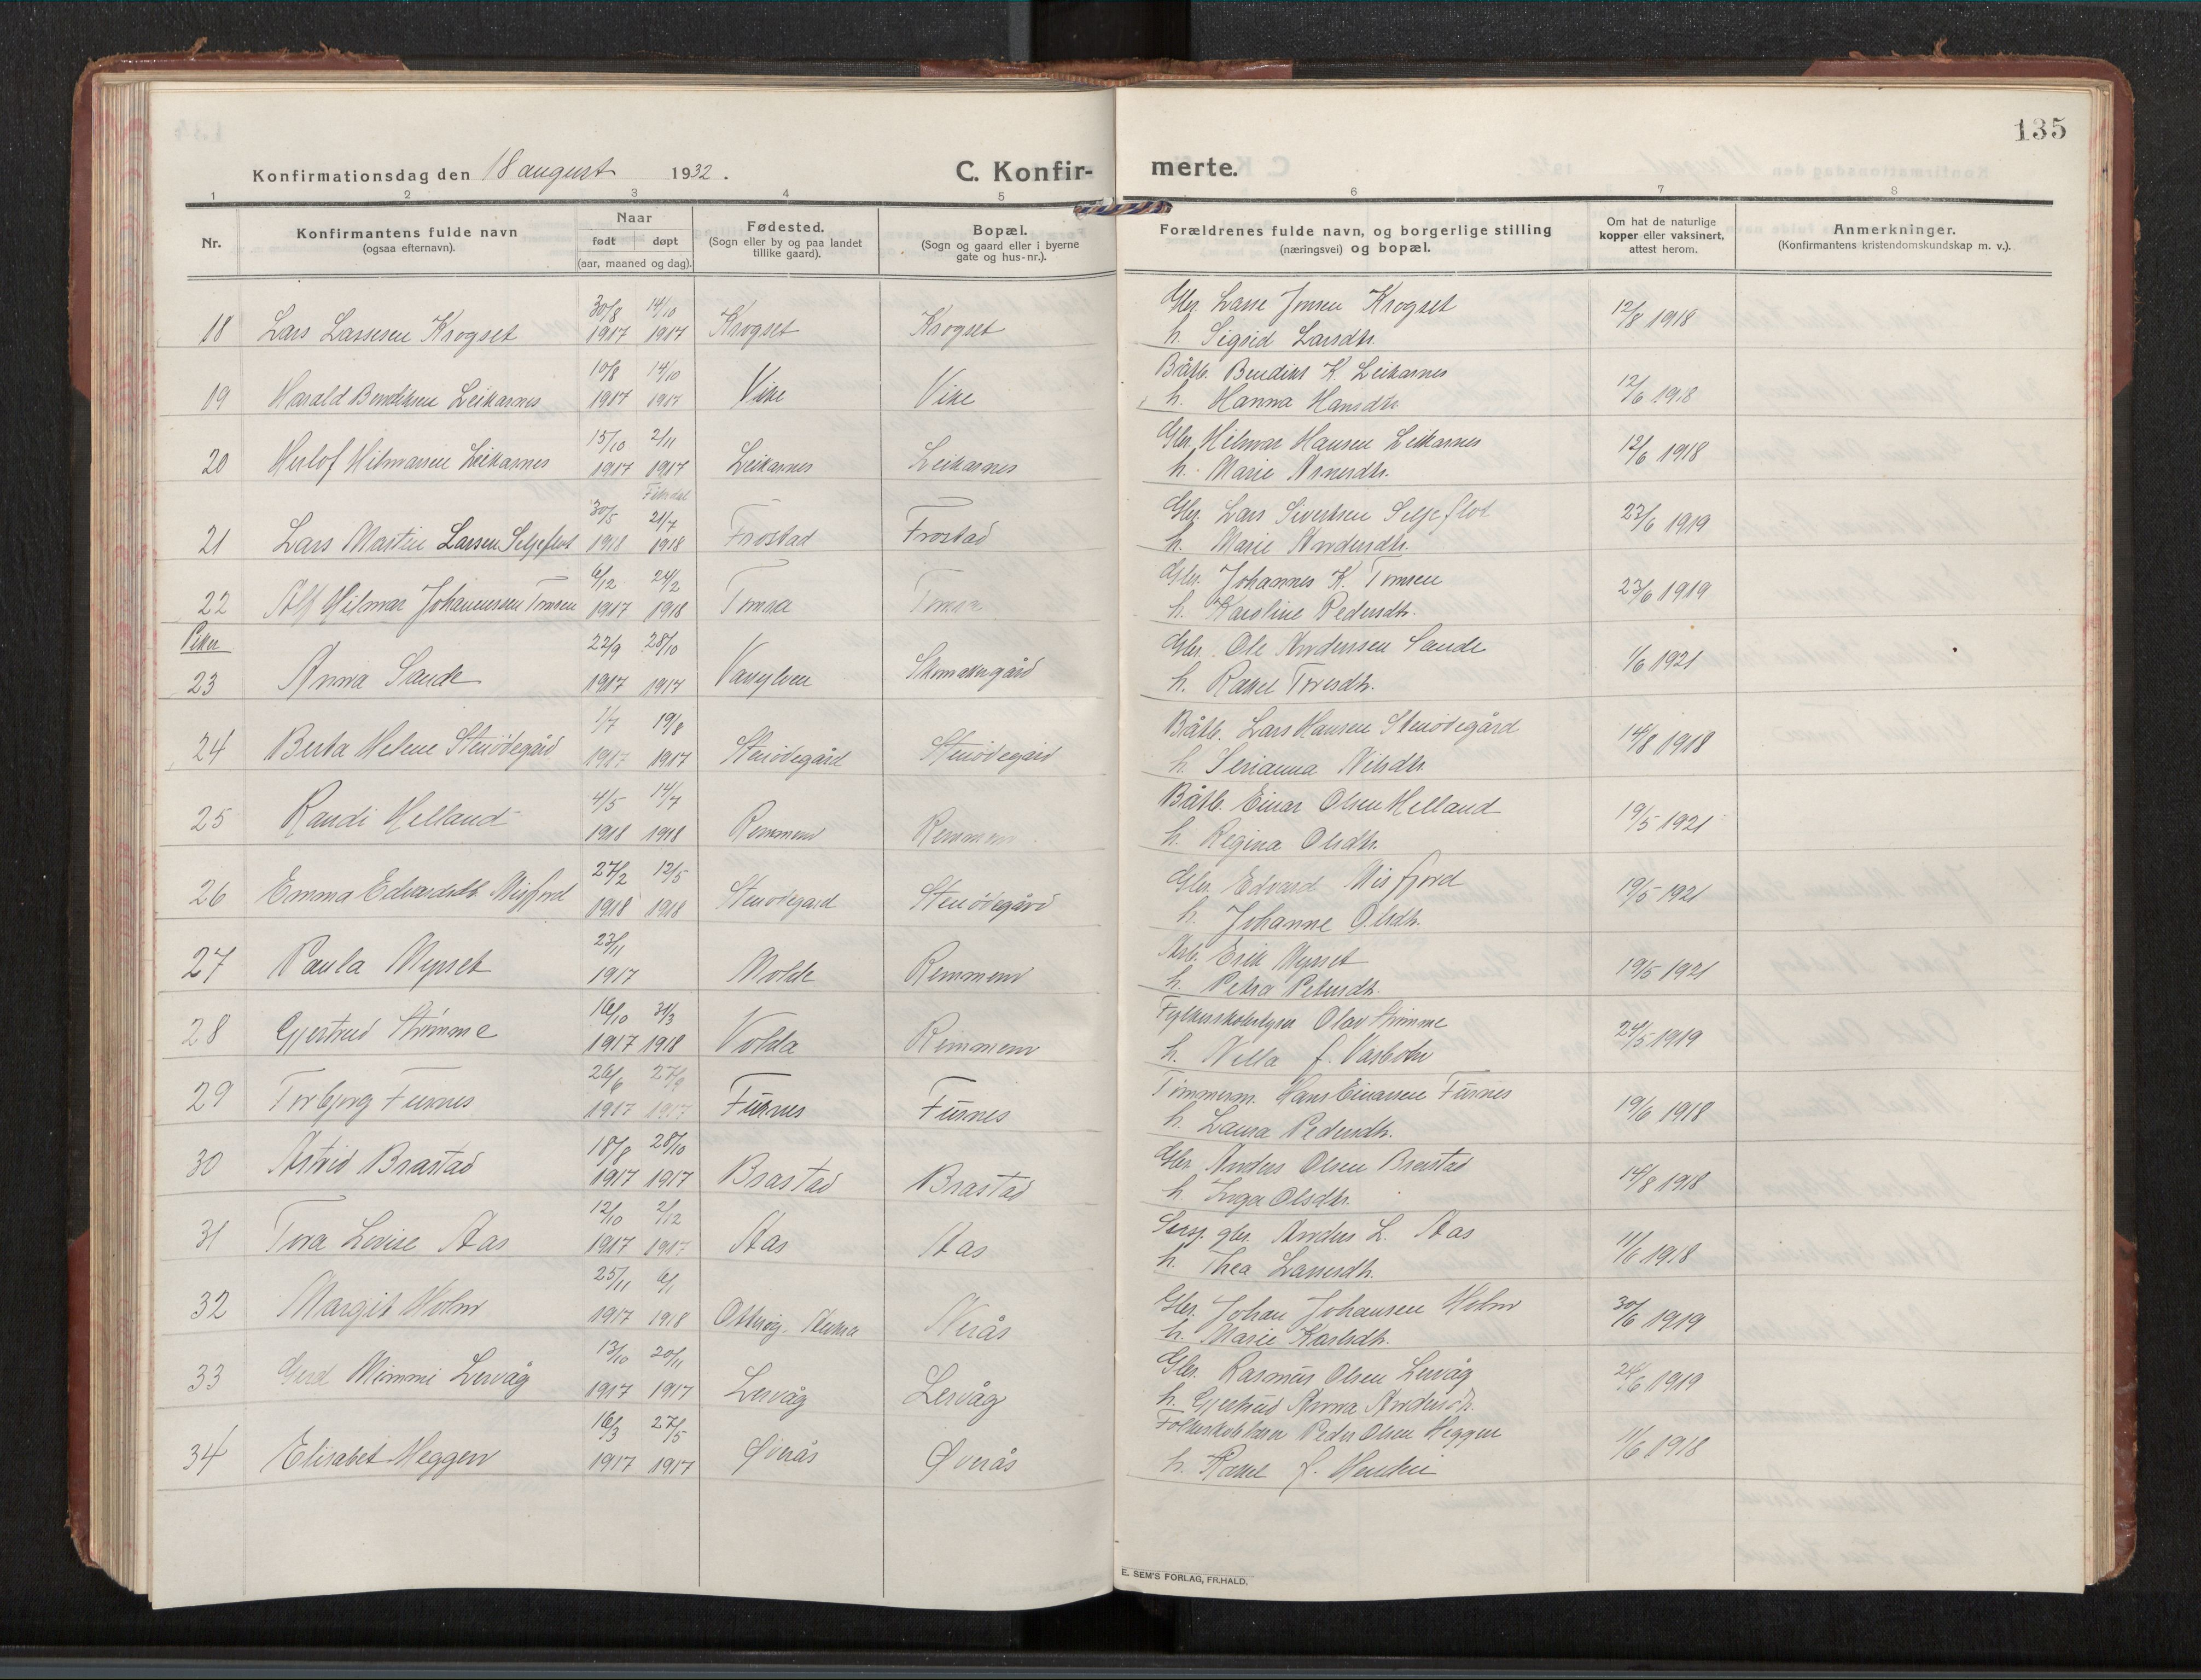 135
Konfirmationsdag den 18 august 1932.
C. Konfirmerte.
1 2 3 4 5 6 7 8
Nr.
Konfirmantens fulde navn
(ogsaa efternavn).
Naar
født døpt
(aar, maaned og dag).
Fødested.
(Sogn eller by og paa landet
tillike gaard).
Bopæl.
(Sogn og gaard eller i byerne
gate og hus-nr.).
Forældrenes fulde navn, og borgerlige stilling
(næringsvei) og bopæl.
Om hat de naturlige
kopper eller vaksinert,
attest herom.
Anmerkninger.
(Konfirmantens kristendomskundskap m. v.).
30/8 14/10 Gbr. Lasse Jonsen Krogset
18 Lars Lassesen Krogset 1917 1917 Krogset Krogset 12/8 1918
h. Sigrid Larsdtr.
10/8 14/10 Båtb. Bendikt K. Leikarnes
19 Harald Bendiksen Leikarnes 1917 1917 Vike Vike 12/6 1918
h. Hanna Hansdtr.
15/10 2/11 Gbr. Hilmar Hansen Leikarnes
20 Herlof Hilmarsen Leikarnes 1917 1917 Leikarnes Leikarnes 12/6 1918
h. Marie Arnesdtr.
30/5 21/7 Gbr. Lars Sivertsen Seljeflot
21 Lars Martin Larsen Seljeflot 1918 1918 Frostad Frostad 23/6 1919
h. Marie Andersdtr.
6/12 24/2 Gbr. Johannes K. Tomsen
22 Alf Hilmar Johannessen Tomsen 1917 1918 Tomsa Tomsa 23/6 1919
h. Karoline Pedersdtr.
Piker
22/9 28/10 Gbr. Ole Andersen Sande
23 Anna Sande 1917 1917 Vanylven Skomakergård 1/6 1921
h. Rakel Toresdtr.
1/7 19/8 Båtb. Lars Hansen Stenödegård
24 Berta Helene Stenödegård 1917 1917 Stenödegård Stenödegård 14/8 1918
h. Serianna Nilsdtr.
4/5 14/7 Båtb. Einar Olsen Helland
25 Randi Helland 1918 1918 Remmem Remmem 19/5 1921
h. Regina Olsdtr.
27/2 12/5 Gbr. Edvard Misfjord
26 Emma Edvardsdtr. Misfjord 1918 1918 Stenödegård Stenödegård 19/5 1921
h. Johanne Olsdtr.
23/11 Arb. Erik Mysset
27 Paula Mysset 1917 Molde Remmem 19/5 1921
h. Petra Petersdtr.
16/10 31/3 Fylkesskolestyrer Olav Strimme
28 Gjertrud Strimme 1917 1918 Volda Remmem 24/5 1919
h. Nella f.
26/6 27/9 Tömmerm. Hans Einarsen Furnes
29 Torbjorg Furnes 1917 1917 Furnes Furnes 19/6 1918
h. Laura Pedersdtr.
18/8 28/10 Gbr. Anders Olsen Brastad
30 Astrid Brastad 1917 1917 Brastad Brastad 14/8 1918
h. Inga Olsdtr.
12/10 2/12 gbr. Anders L. Aas
31 Tora Lovise Aas 1917 1917 Aas Aas 11/6 1918
h. Thea Lassesdtr.
25/11 6/1 Gbr. Johan Johansen Holm
32 Margit Holm 1917 1918 Otteröy. Akera Nerås 30/6 1919
h. Marie Karlsdtr.
13/10 20/11 Gbr. Rasmus Olsen Lervåg
33 Gerd Mimmi Lervåg 1917 1917 Lervåg Lervåg 24/6 1919
h. Gjertrud Anna Andersdtr.
16/3 27/5 Folkeskolelærer Peder Olsen Heggem
34 Elisabet Heggem 1917 1917 Øverås Øverås 11/6 1918
h. Rakel f.
E. SEM'S FORLAG, FR.HALD,